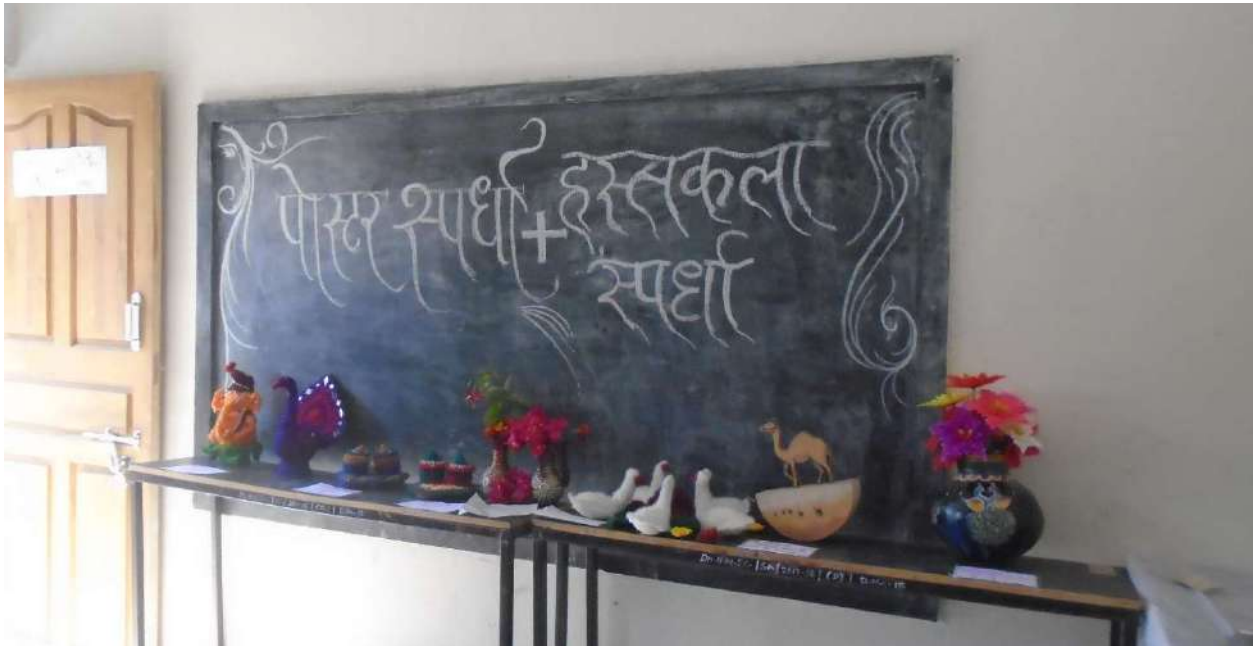 पोस्टर स्पर्धा + हस्तकला
स्पर्धा